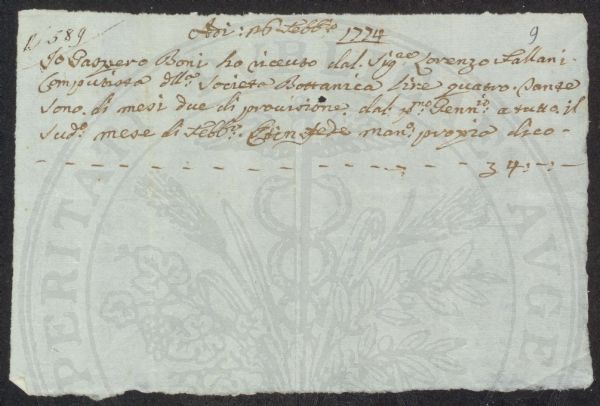 N 589
Adi: 26 Febb.º 1774
9
Io Gaspero Boni ho riceuto dal Sig.re Lorenzo Fallani
Computista dll.ª Società Bottanica lire quatro. Tante
sono. di mesi due di provisione. dal p.mo Genn.º a tutto il
sud.º mese di Febb.º Ed in fede man.º propia dico-
34:-:-
PERITAN
AUGE